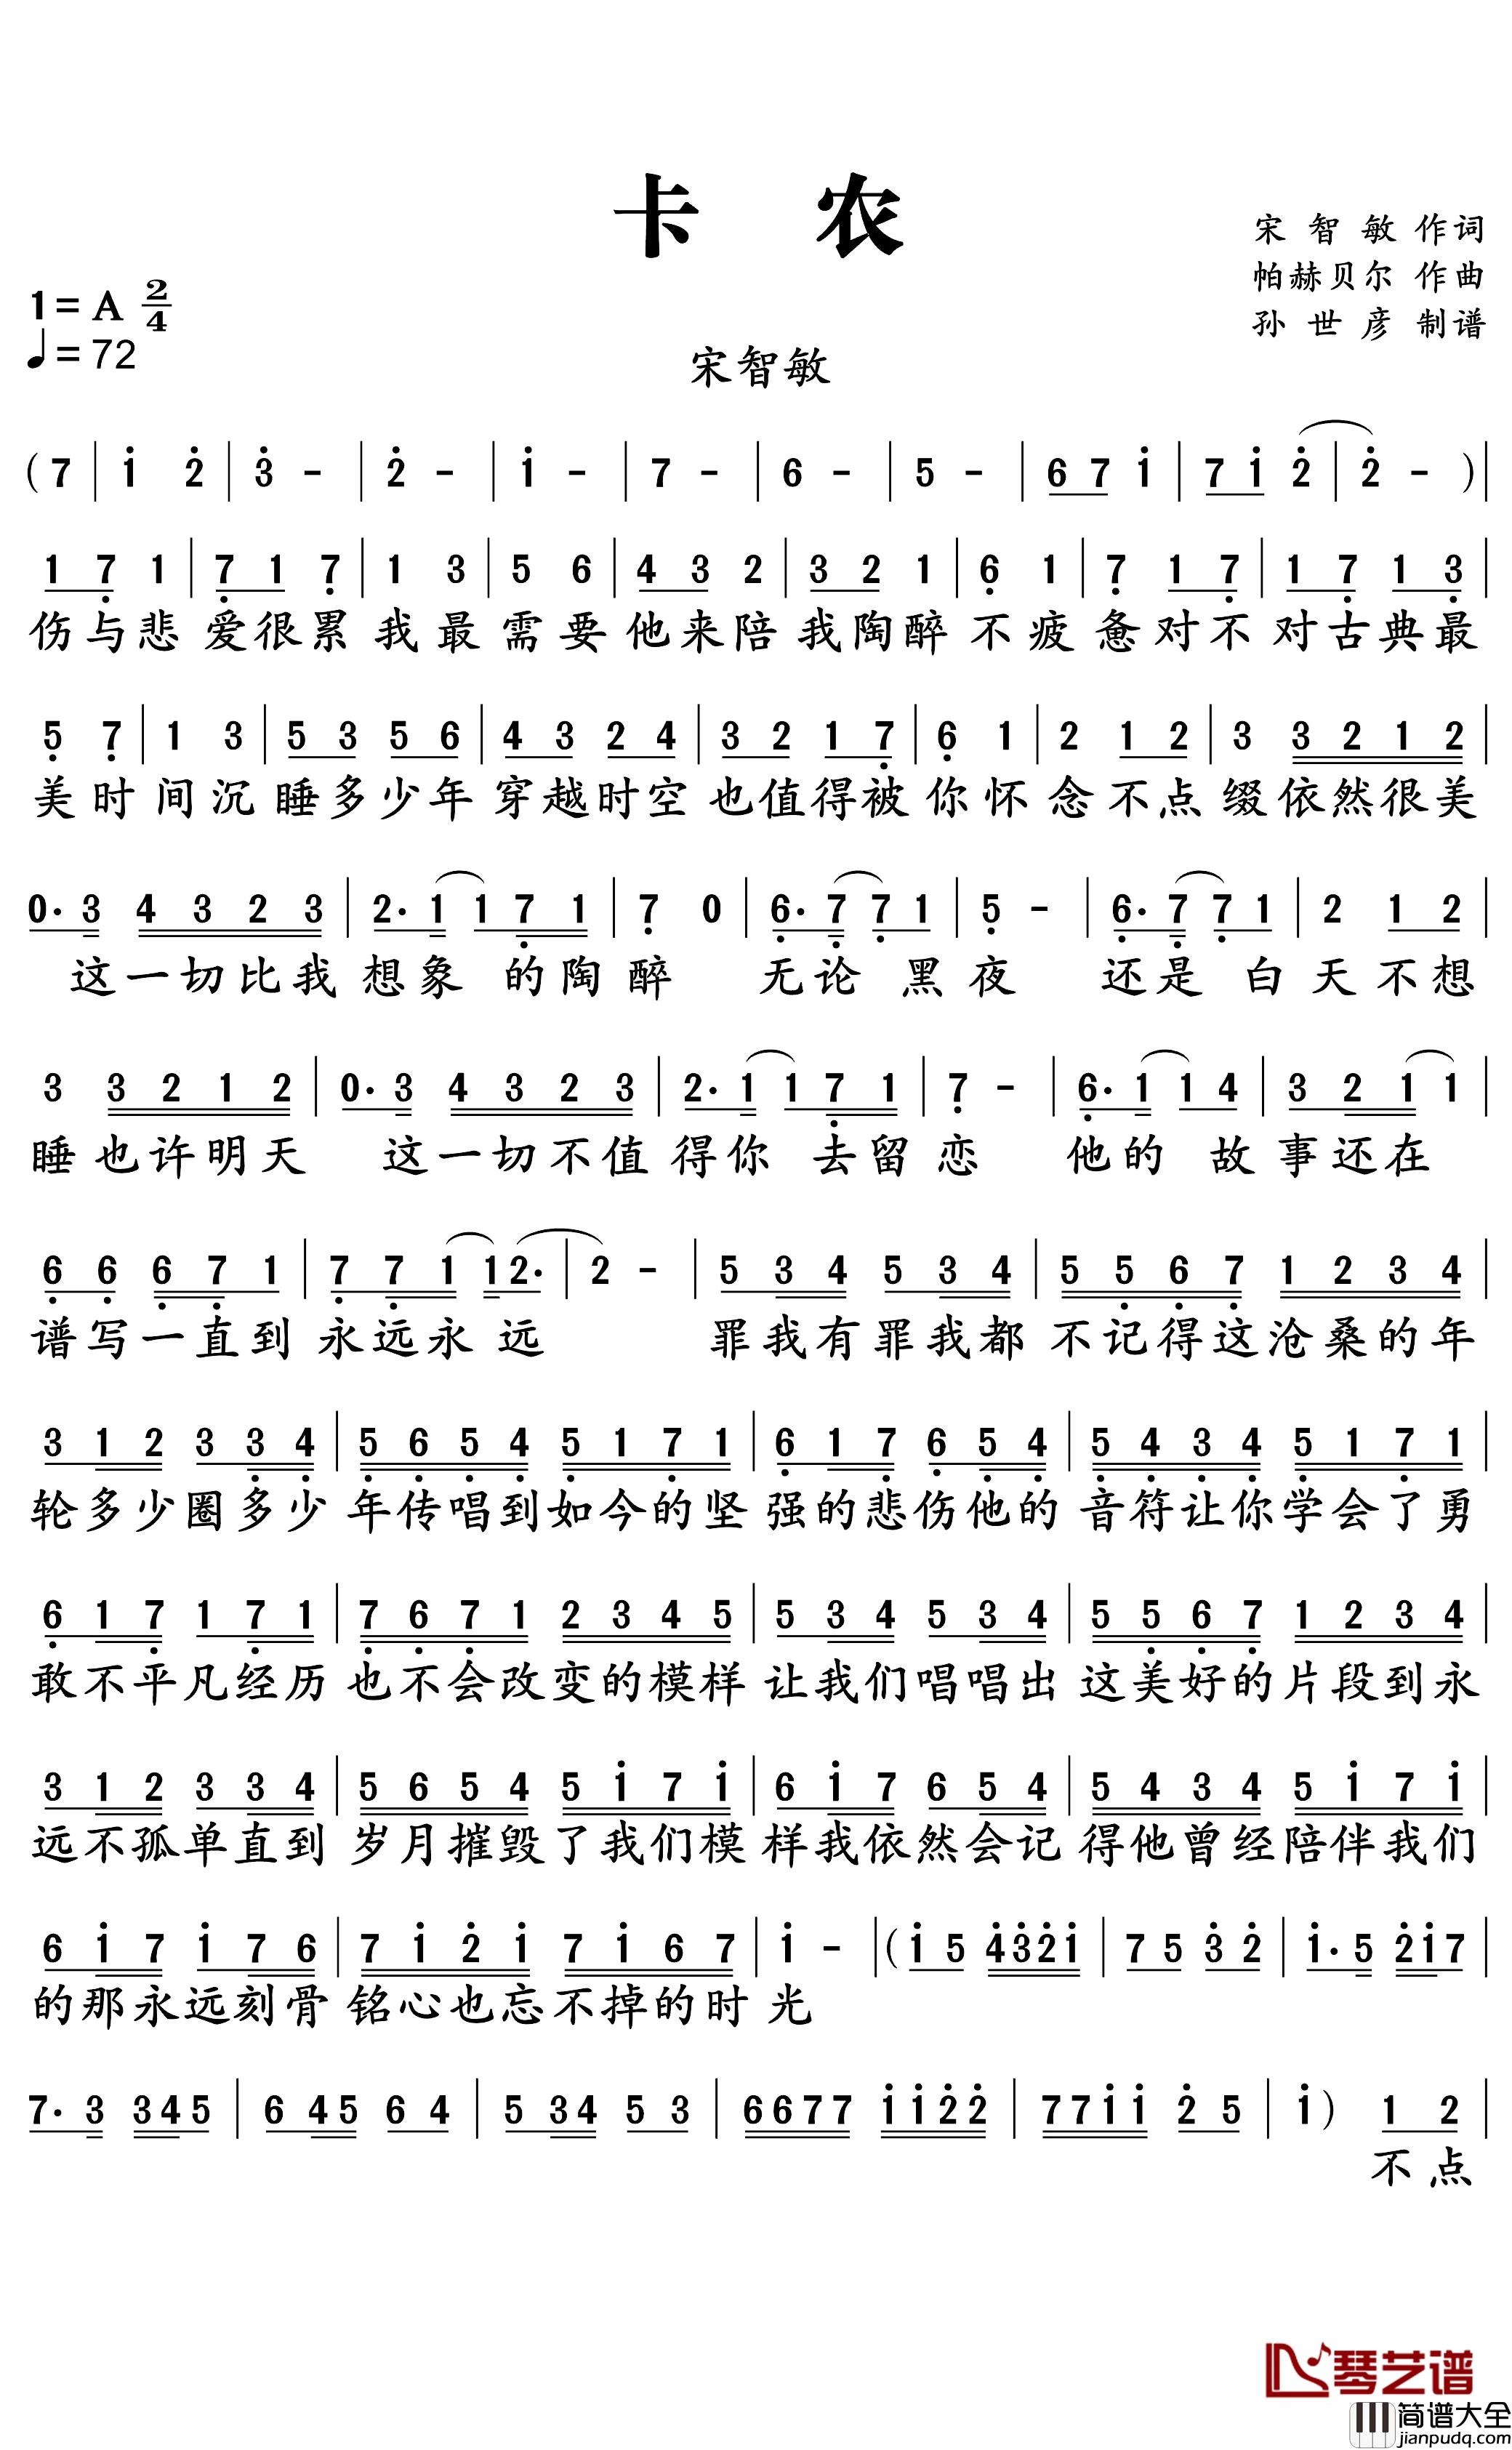 卡 农
宋 智 敏 作词
帕赫贝尔 作曲
孙 世 彦 制谱
1= A 2/4
♩= 72
宋智敏
( 7 | i̇ 2̇ | 3̇ - | 2̇ - | i̇ - | 7 - | 6 - | 5 - | 6 7 i̇ | 7 i̇ 2̇ | 2̇ - ) |
1 7̣ 1 | 7̣ 1 7̣ | 1 3 | 5 6 | 4 3 2 | 3 2 1 | 6̣ 1 | 7̣ 1 7̣ | 1 7̣ 1 3̣ |
伤与悲 爱很累 我最需要他来陪我陶醉不疲惫对不对古典最
5̣ 7̣ | 1 3 | 5 3 5 6 | 4 3 2 4 | 3 2 1 7̣ | 6̣ 1 | 2 1 2 | 3 3 2 1 2 |
美时间沉睡多少年穿越时空也值得被你怀念不点缀依然很美
0· 3 4 3 2 3 | 2· 1 1 7̣ 1 | 7̣ 0 | 6̣· 7̣ 7̣ 1 | 5̣ - | 6̣· 7̣ 7̣ 1 | 2 1 2 |
这一切比我想象的陶醉 无论黑夜 还是白天不想
3 3 2 1 2 | 0· 3 4 3 2 3 | 2· 1 1 7̣ 1 | 7̣ - | 6̣· 1 1 4 | 3 2 1 1 |
睡也许明天 这一切不值得你去留恋 他的故事还在
6̣ 6̣ 6̣ 7̣ 1 | 7̣ 7̣ 1 1 2· | 2 - | 5 3 4 5 3 4 | 5 5̣ 6̣ 7̣ 1 2 3 4 |
谱写一直到永远永远 罪我有罪我都不记得这沧桑的年
3 1 2 3 3̣ 4̣ | 5̣ 6̣ 5̣ 4̣ 5̣ 1 7̣ 1 | 6̣ 1 7̣ 6̣ 5̣ 4̣ | 5̣ 4̣ 3̣ 4̣ 5̣ 1 7̣ 1 |
轮多少圈多少年传唱到如今的坚强的悲伤他的音符让你学会了勇
6̣ 1 7̣ 1 7̣ 1 | 7̣ 6̣ 7̣ 1 2 3 4 5 | 5 3 4 5 3 4 | 5 5̣ 6̣ 7̣ 1 2 3 4 |
敢不平凡经历也不会改变的模样让我们唱唱出这美好的片段到永
3 1 2 3 3 4 | 5 6 5 4 5 i̇ 7 i̇ | 6 i̇ 7 6 5 4 | 5 4 3 4 5 i̇ 7 i̇ |
远不孤单直到岁月摧毁了我们模样我依然会记得他曾经陪伴我们
6 i̇ 7 i̇ 7 6 | 7 i̇ 2̇ i̇ 7 i̇ 6 7 | i̇ - | ( i̇ 5 4̇ 3̇ 2̇ i̇ | 7 5 3̇ 2̇ | i̇· 5 2̇ i̇ 7 |
的那永远刻骨铭心也忘不掉的时光
7· 3 3 4 5 | 6 4 5 6 4 | 5 3 4 5 3 | 6 6 7 7 i̇ i̇ 2̇ 2̇ | 7 7 i̇ i̇ 2̇ 5 | i̇ ) 1 2 |
不点
琴艺谱
简谱大全
jianpudq.com